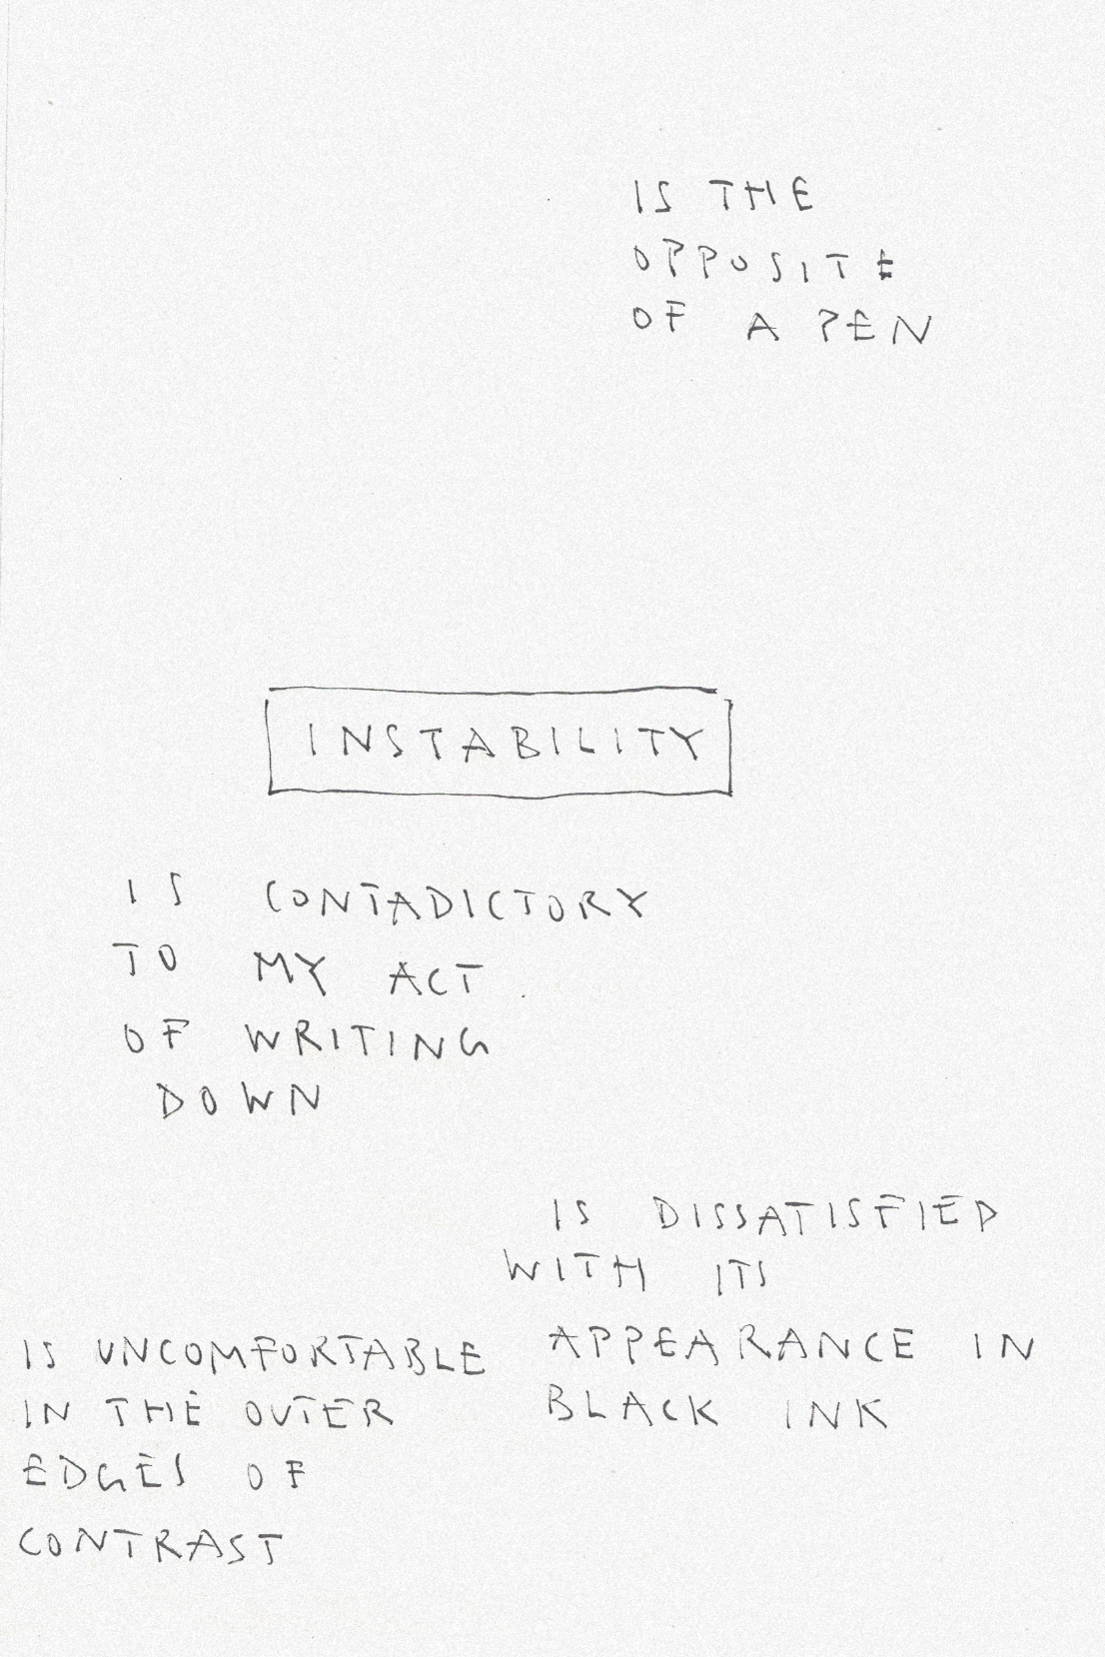 IS THE
OPPOSITE
OF A PEN
INSTABILITY
IS CONTADICTORY
TO MY ACT
OF WRITING
DOWN
IS DISSATISFIED
WITH ITS
APPEARANCE IN
BLACK INK
IS UNCOMFORTABLE
IN THE OUTER
EDGES OF
CONTRAST